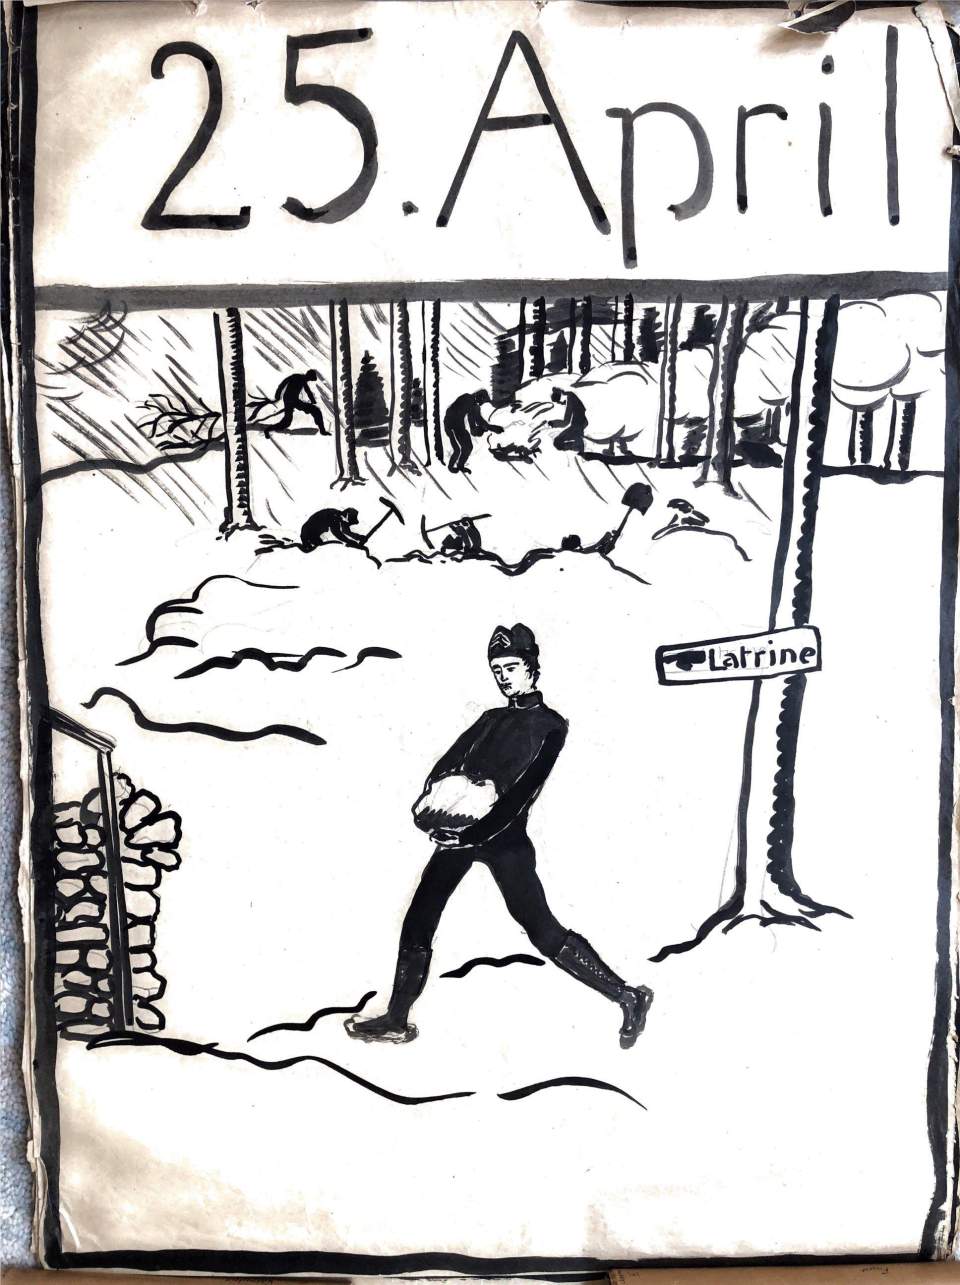 25. April
Latrine